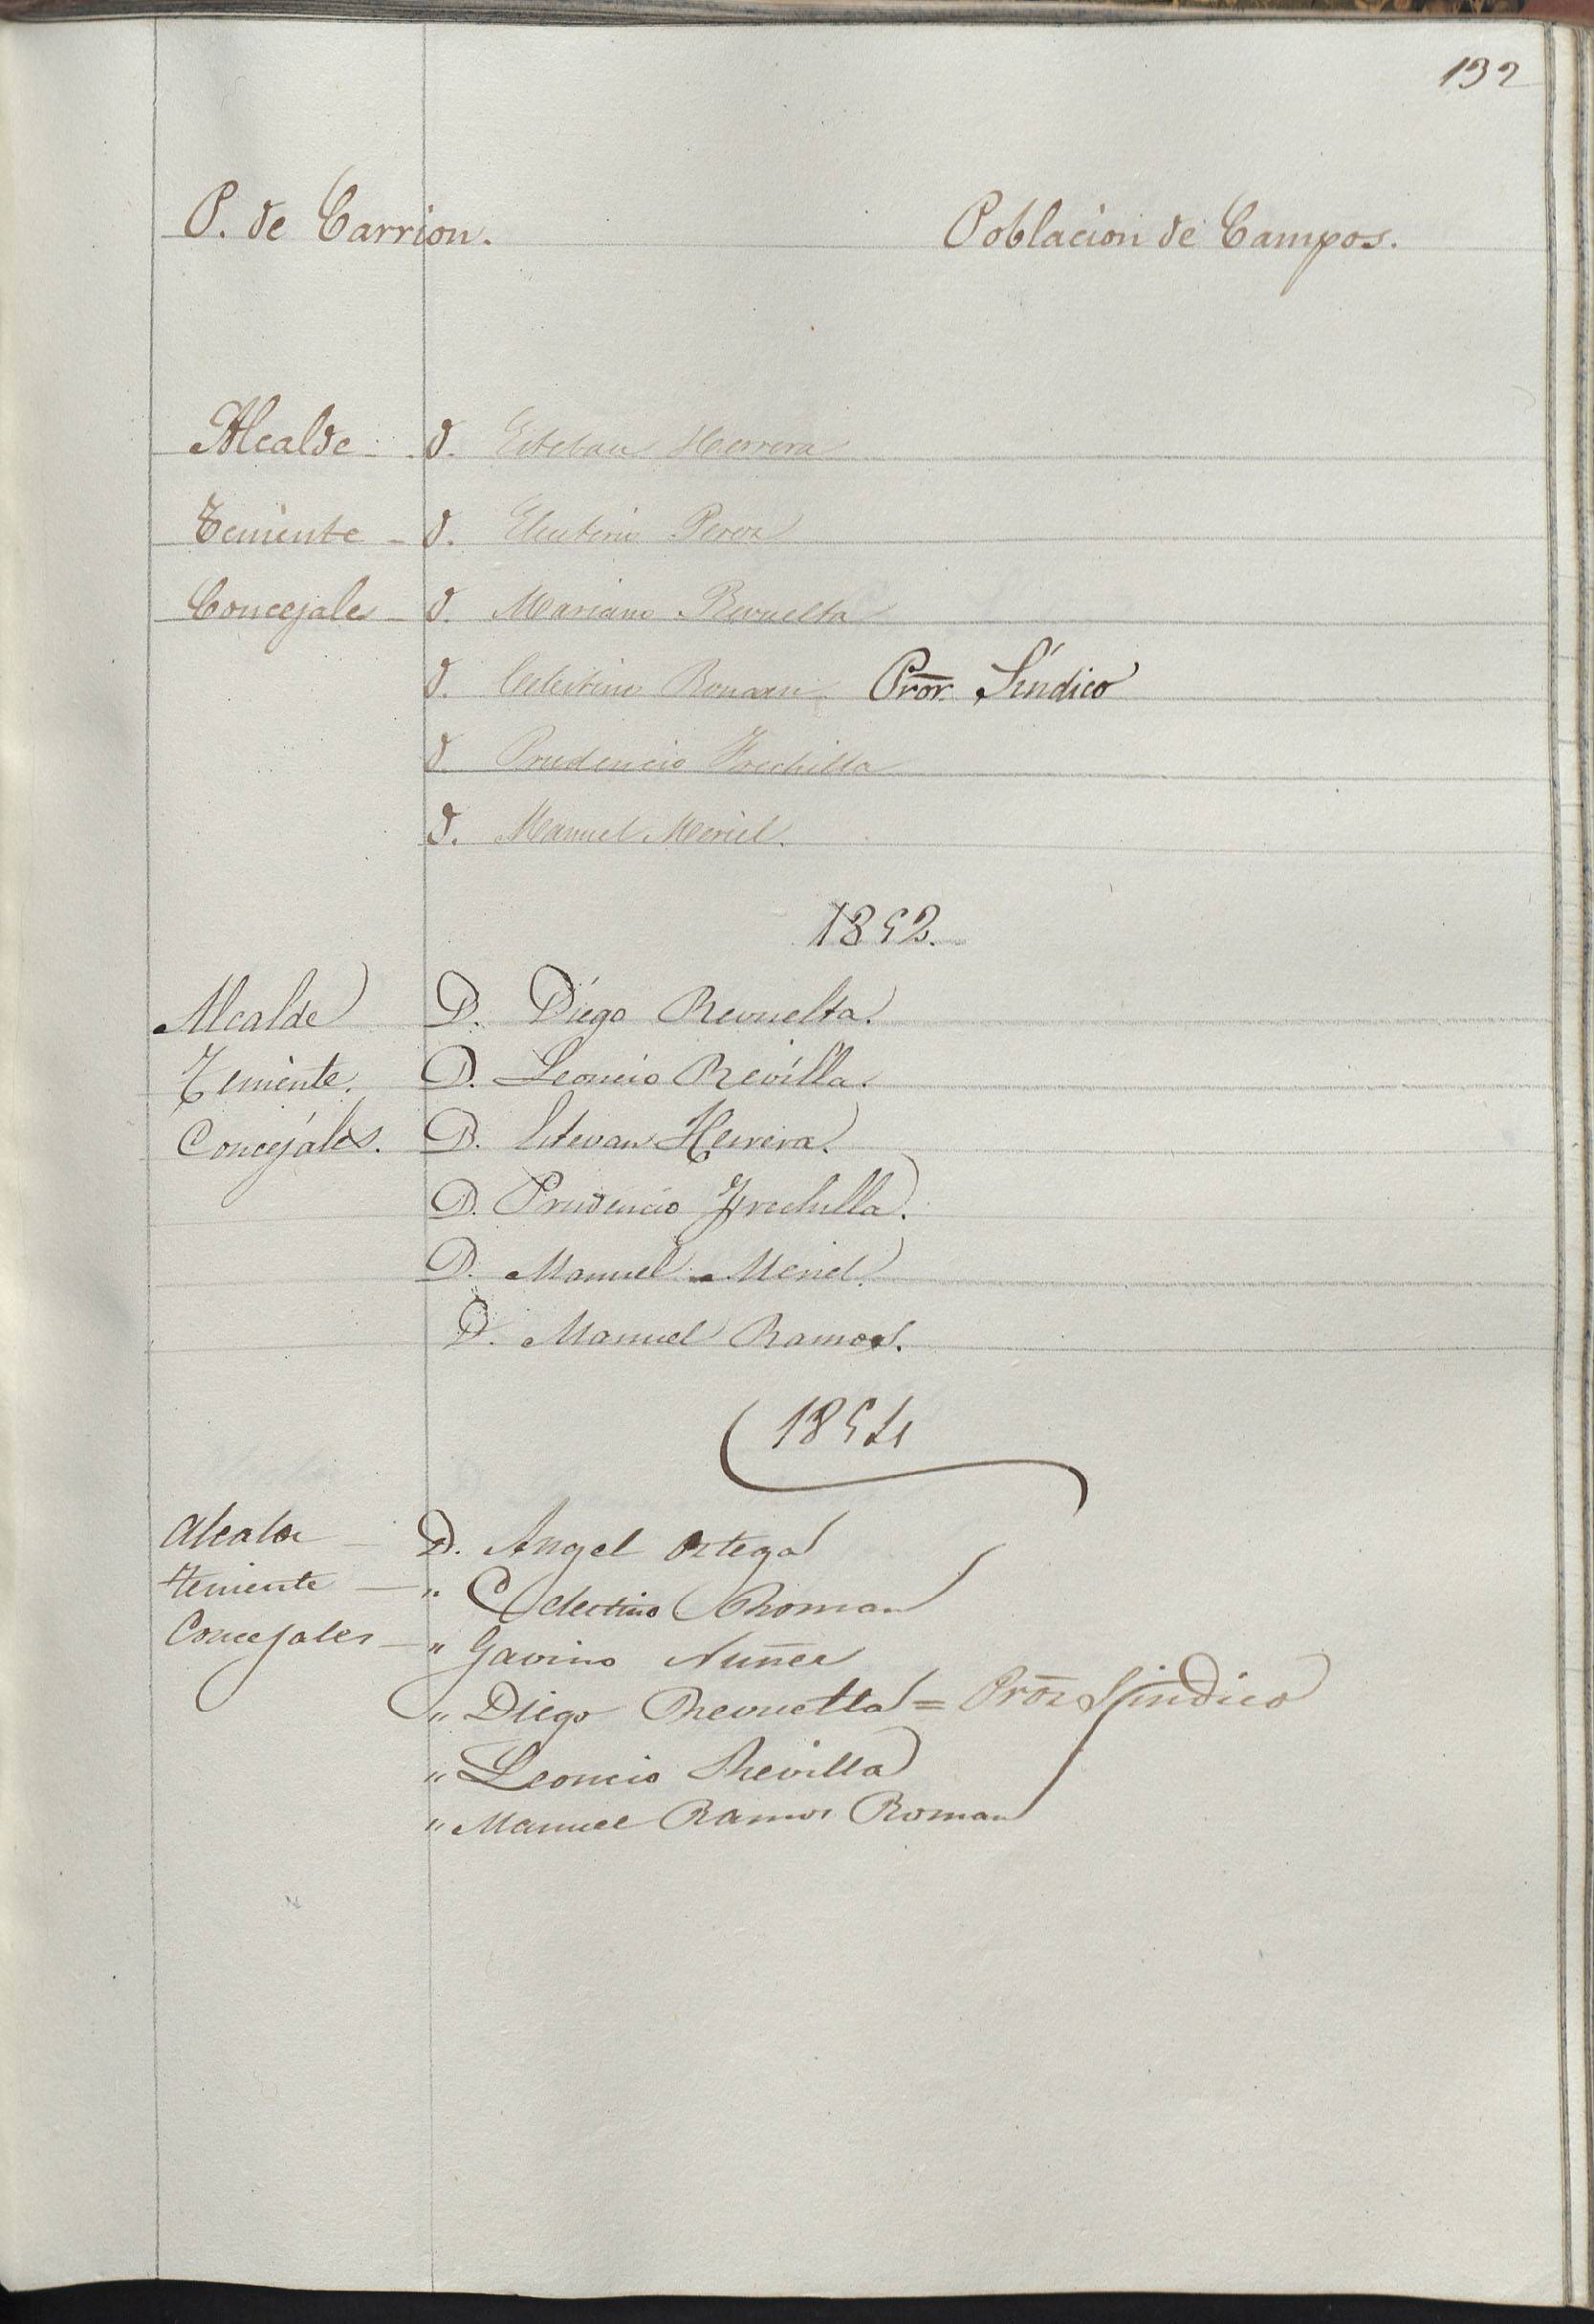 132
P. de Carrion. Poblacion de Campos.
Alcalde - D. Esteban Herrera
Teniente - D. Eleuterio Perez
Concejales - D. Mariano Revuelta
D. Celestino Roman Pror. Síndico
D. Prudencio Frechilla
D. Manuel Meriel.
1852.
Alcalde D. Diego Revuelta.
Teniente. D. Leoncio Revilla.
Concejales. D. Estevan Herrera.
D. Prudencio Frechilla.
D. Manuel Meriel.
D. Manuel Ramos.
1854
Alcalde - D. Angel Ortega
Teniente - " Celestino Roman
Concejales - " Gavino Nuñez
" Diego Revuelta = Pror Sindico
" Leoncio Revilla
" Manuel Ramos Roman